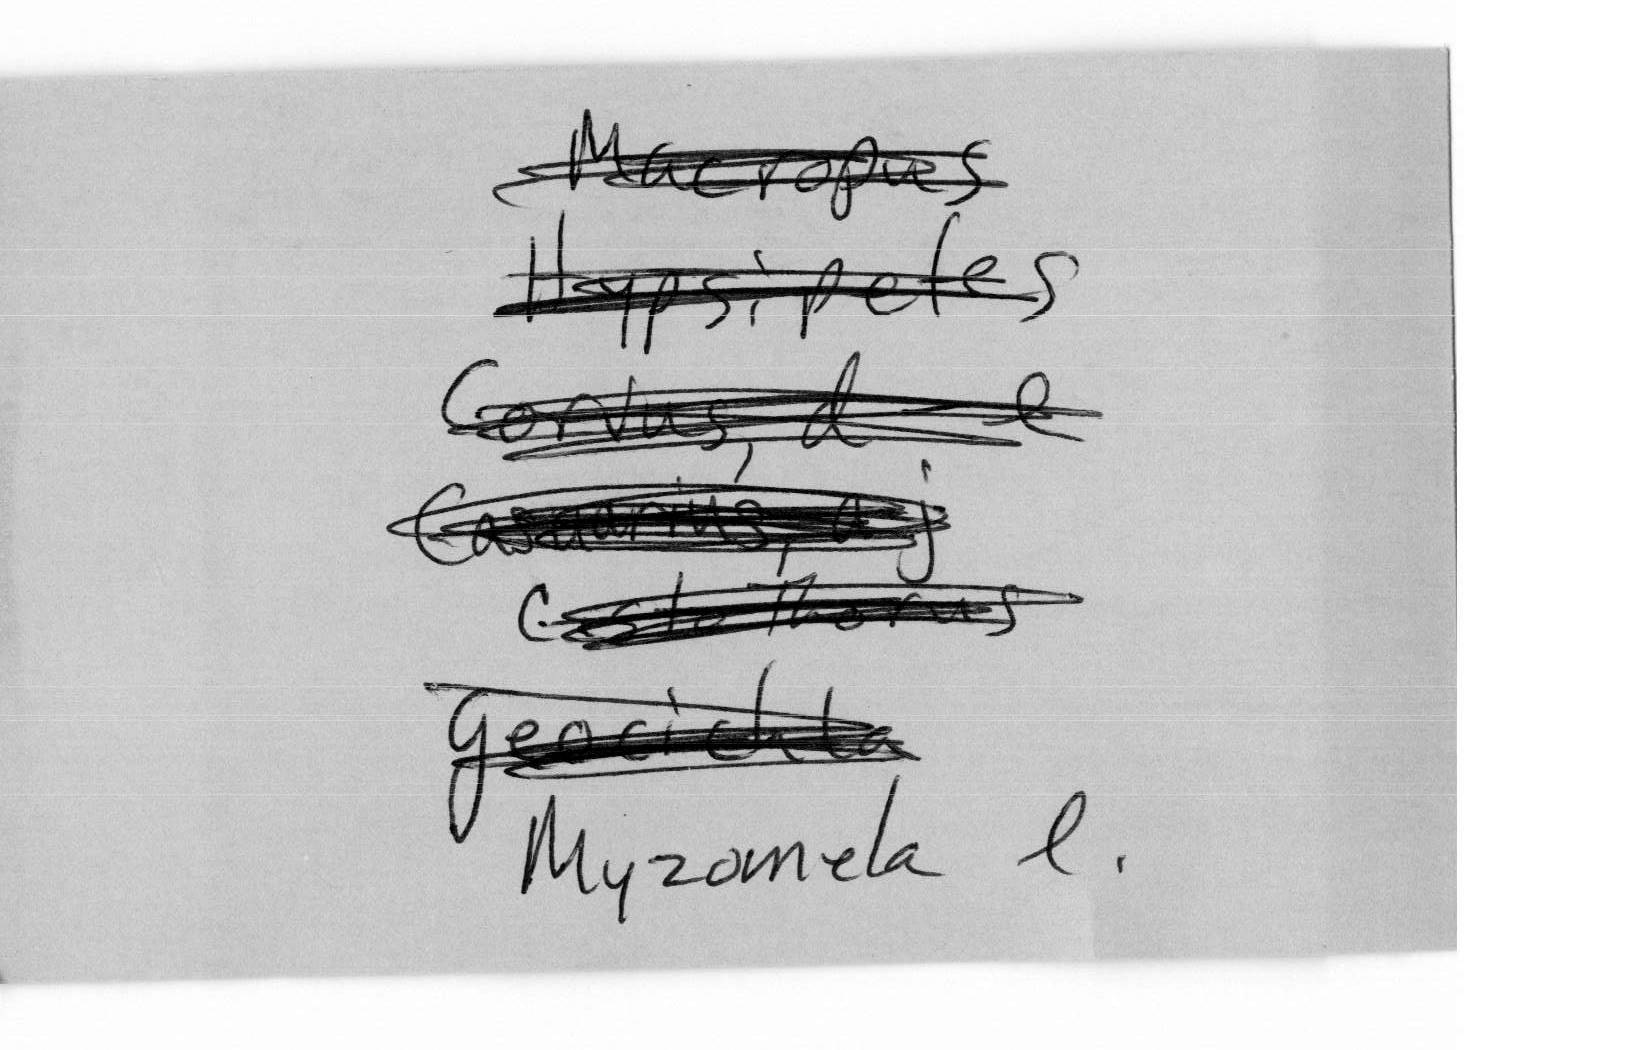 Macropus
Hypsipetes
Corvus, d e
Casuarius, d j
Cistothorus
Geocichla
Myzomela l.